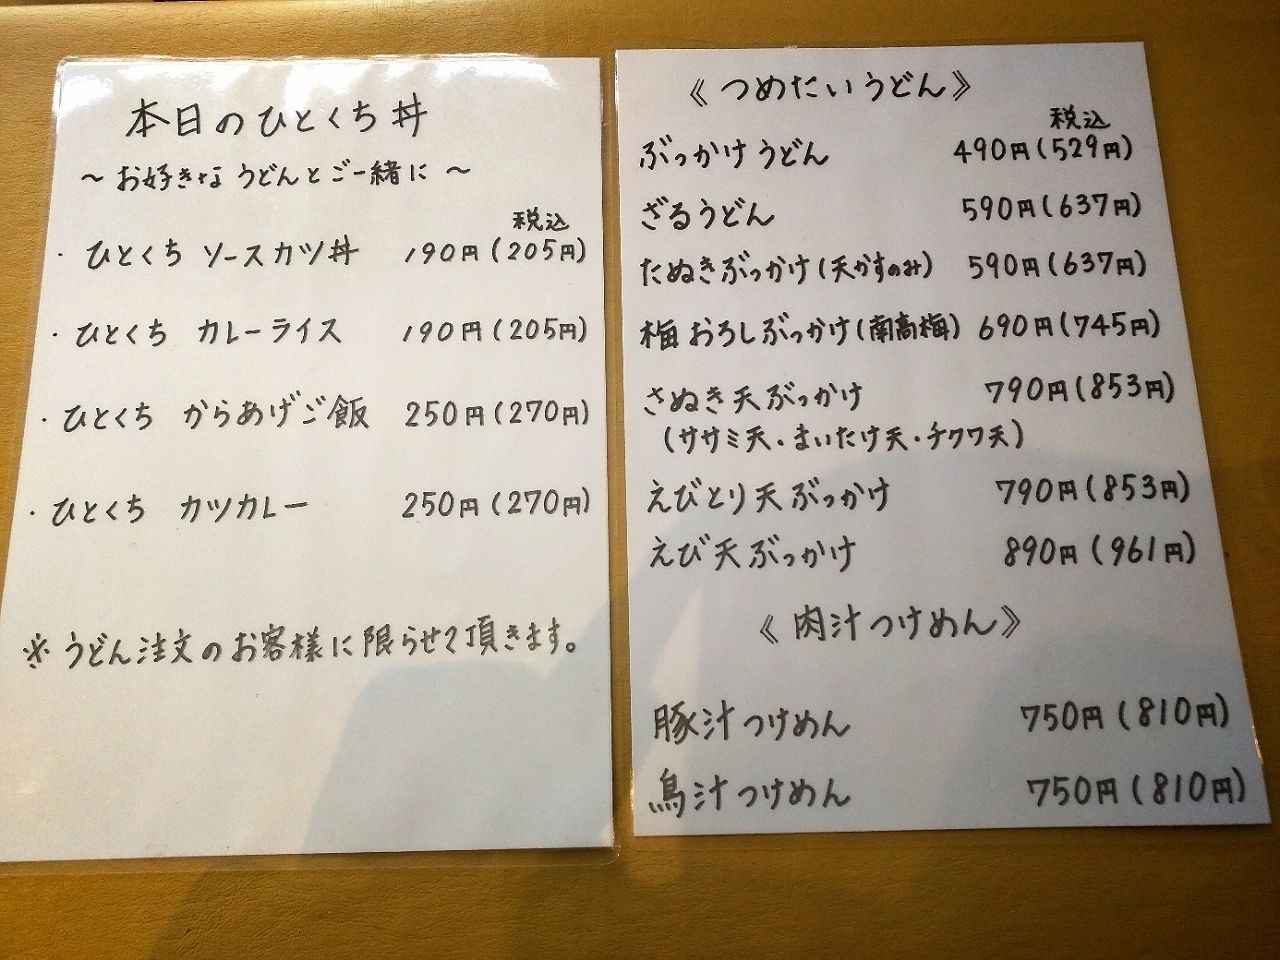 本日のひとくち丼
～お好きなうどんとご一緒に～
税込
・ひとくち ソースカツ丼 190円(205円)
・ひとくち カレーライス 190円(205円)
・ひとくち からあげご飯 250円(270円)
・ひとくち カツカレー 250円(270円)
※うどん注文のお客様に限らせて頂きます。
《つめたいうどん》
税込
ぶっかけうどん 490円(529円)
ざるうどん 590円(637円)
たぬきぶっかけ(天かすのみ) 590円(637円)
梅おろしぶっかけ(南高梅) 690円(745円)
さぬき天ぶっかけ 790円(853円)
(ササミ天・まいたけ天・チクワ天)
えびとり天ぶっかけ 790円(853円)
えび天ぶっかけ 890円(961円)
《肉汁つけめん》
豚汁つけめん 750円(810円)
鳥汁つけめん 750円(810円)